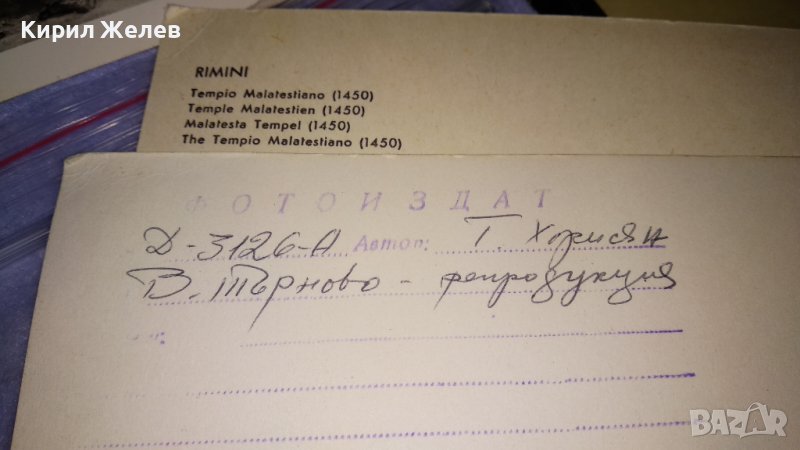 Кирил Желев
RIMINI
Tempio Malatestiano (1450)
Temple Malatestien (1450)
Malatesta Tempel (1450)
The Tempio Malatestiano (1450)
ФОТОИЗДАТ
Д-3126-А Автор: Т.
В. Търново - репродукция
BAZAR
bazar.bg